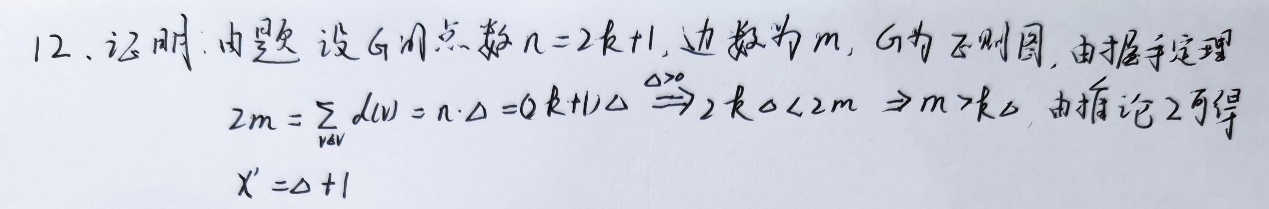 12、证明:由题 设G的点数n=2k+1,边数为m,G为正则图,由握手定理
2m = ∑_{v∈V} d(v) = n·Δ = (2k+1)Δ ⟹^{Δ>0} 2kΔ<2m ⇒ m>kΔ,由推论2可得
χ' = Δ+1